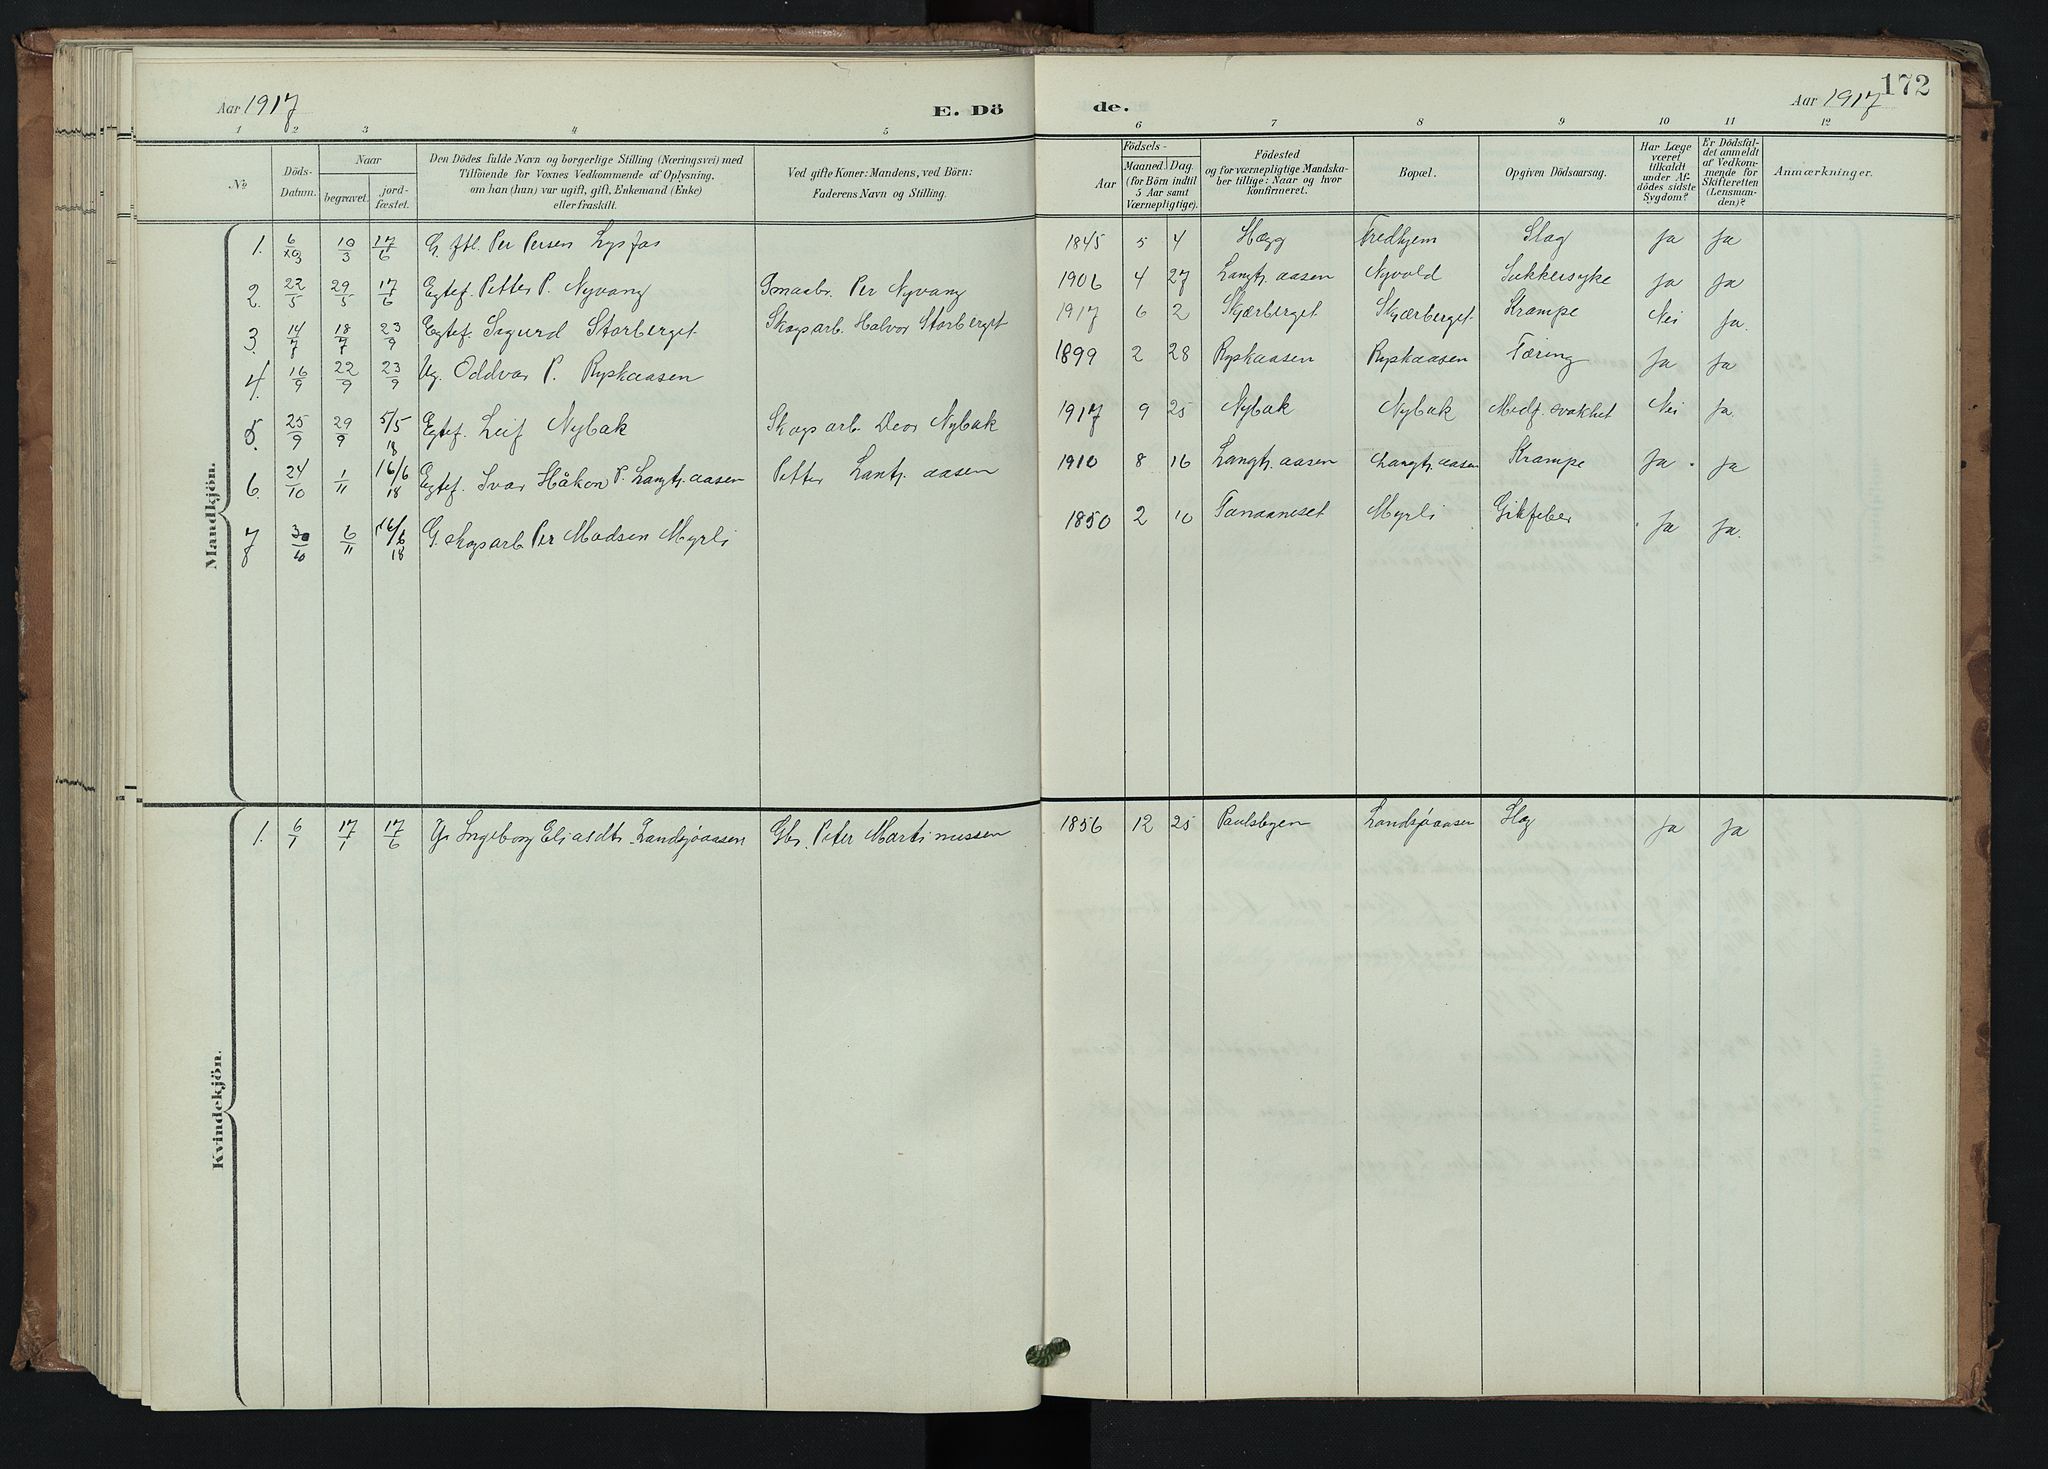 172
Aar 1917
E. Dö
de.
Aar 1917
1 2 3 4 5 6 7 8 9 10 11 12
№
Döds-Datum.
Naar
begravet.
jord-fæstet.
Den Dödes fulde Navn og borgerlige Stilling (Næringsvei) med
Tilföiende for Voxnes Vedkommende af Oplysning,
om han (hun) var ugift, gift, Enkemand (Enke)
eller fraskilt.
Ved gifte Koner: Mandens, ved Börn:
Faderens Navn og Stilling.
Födsels-
Aar
Maaned. Dag.
(for Börn indtil
5 Aar samt
Værnepligtige).
Födested
og for værnepligtige Mandska-
ber tillige: Naar og hvor
konfirmeret.
Bopæl.
Opgiven Dödsaarsag.
Har Læge
været
tilkaldt
under Af-
dödes sidste
Sygdom?
Er Dödsfal-
det anmeldt
af Vedkom-
mende for
Skifteretten
(Lensman-
den)?
Anmærkninger.
Mandkjön.
1. 6/3 10/3 17/6 G. Per Persen Lysfos 1845 5 4 Hægg Fredhjem Slag Ja Ja
2. 22/5 29/5 17/6 Egtef. Petter P. Nyvang Smaabr. Per Nyvang 1906 4 27 Langtj. aasen Nyvold Sukkersyke Ja Ja
3. 14/7 18/7 23/9 Egtef. Sigurd Storberget Skogsarb. Halvor Storberget 1917 6 2 Skjærberget Skjærberget Krampe Nei Ja.
4. 16/9 22/9 23/9 Ug. Oddvar P. Rypkaasen 1899 2 28 Rypkaasen Rypkaasen Tæring Ja Ja
5. 25/9 29/9 5/5 18 Egtef. Leif Nybak Skogsarb. Nybak 1917 9 25 Nybak Nybak Medf. svakhet Nei Ja.
6. 24/10 1/11 16/6 18 Egtef. Ivar Håkon P. Langtj. aasen Petter Lantj. aasen 1910 8 16 Langtj. aasen Langtj. aasen Krampe Ja Ja
7 30/10 6/11 16/6 18 G. skogsarb Per Madsen Myrli 1850 2 10 Myrli Gikfeber Ja Ja.
Kvindekjön.
1. 6/1 17/1 17/6 Ingeborg Eliasdtr. Landsjøaasen Gbr. Peter Martinussen 1856 12 25 Paulsbyen Landsjøaasen Slag Ja Ja